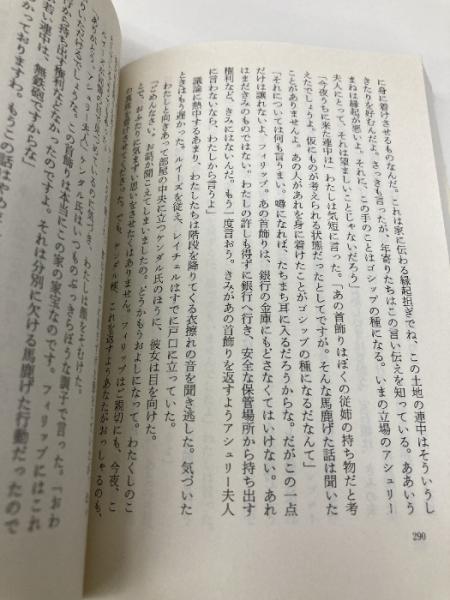 に身に着けさせるものなんだ。これは家に伝わる縁起担ぎでね、この土地の連中はそういうし
きたりを好むんだよ。さっきも言ったが、年寄りたちはこの言い伝えを知っている。ああいう
まねは縁起が悪いよ。それに、この手のことはゴシップの種になる。いまの立場のアシュリー
夫人にとって、それは望ましいことじゃないだろう」
「今夜うちに来た連中は」わたしは気短に言った。「あの首飾りはぼくの従姉の持ち物だと考
えたでしょうよ。仮にものが考えられる状態だったとしてですが。そんな馬鹿げた話は聞いた
ことがありませんよ。あの人があれを身に着けたことがゴシップの種になるだなんて」
「それについては何も言うまい。噂になれば、たちまち耳に入るだろうからな。だがこの一点
だけは譲れないよ、フィリップ。あの首飾りは、銀行の金庫にもどさなくてはいけない。あれ
はまだきみのものじゃない。わたしの許しも得ずに銀行へ行き、安全な保管場所から持ち出す
権利など、きみにはないんだ。もう一度言おう。きみがあの首飾りを返すようアシュリー夫人
に言わないなら、わたしから言うよ」
議論に熱中するあまり、わたしたちは階段を降りてくる衣擦れの音を聞き逃した。気づいた
ときはもう遅かった。ルイーズを従え、レイチェルはすでに戸口に立っていた。
わたしと向きあって部屋の中央に立つケンダル氏のほうに、彼女は目を向けた。
「ごめんなさい。お話が聞こえてしまいましたの。どうかもうおよしになって。わたくしのこ
とで、おふたりに気まずい思いをさせたくはありません。フィリップはご親切にも、今夜、こ
の
でも、ケンダル様、これを返すようあなたがおっしゃるのも、
気づき、わたしは顔をそむけた。
ケンダル氏はいつものぶっきらぼうな調子で言った。「おわ
の首飾りは本当にこの家の家宝なのです。フィリップにはこれ
から持ち出す権利などなかったのですよ。それは分別に欠ける馬鹿げた行動だったので
若い連中は、無鉄砲ですからな」
っておりますわ。もうこの話はやめ
290